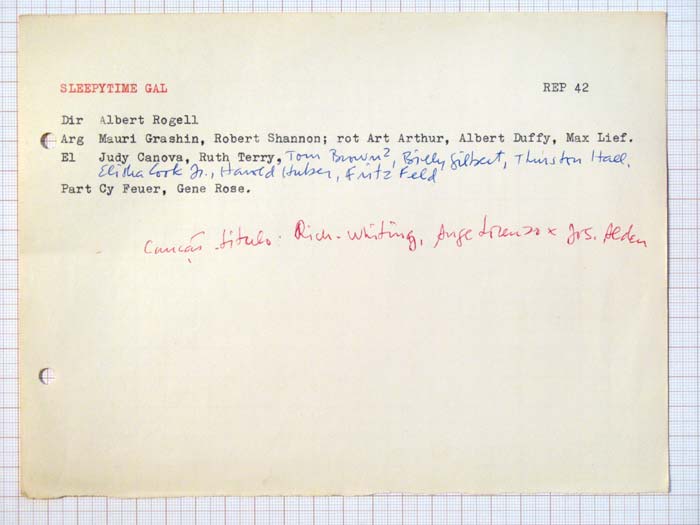 SLEEPYTIME GAL REP 42
Dir Albert Rogell
Arg Mauri Grashin, Robert Shannon; rot Art Arthur, Albert Duffy, Max Lief.
El Judy Canova, Ruth Terry, Tom Brown², Billy Gilbert, Thurston Hall,
Elisha Cook Jr., Harold Huber, Fritz Feld
Part Cy Feuer, Gene Rose.
Canção título. Rich. Whiting, Ange Lorenzo x Jos. Alden